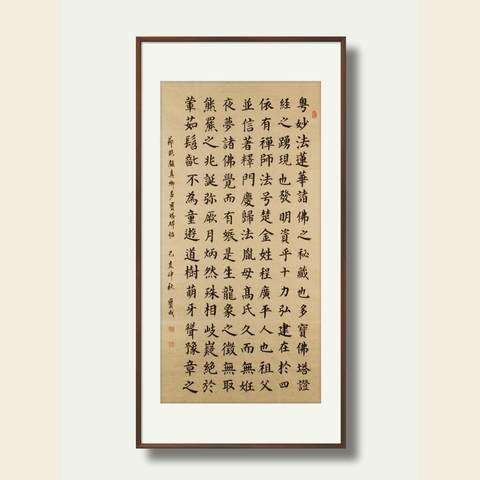 粵妙法蓮華諸佛之秘藏也多寶佛塔證
經之踴現也發明資乎十力弘建在於四
依有禪師法號楚金姓程廣平人也祖父
並信著釋門慶歸法胤母髙氏久而無姙
夜夢諸佛覺而有娠是生龍象之徵無取
熊羆之兆誕弥厥月炳然殊相岐嶷絕於
葷茹髫齔不為童遊道樹萌牙聳豫章之
節臨顏真卿多寶塔碑帖 己亥仲秋